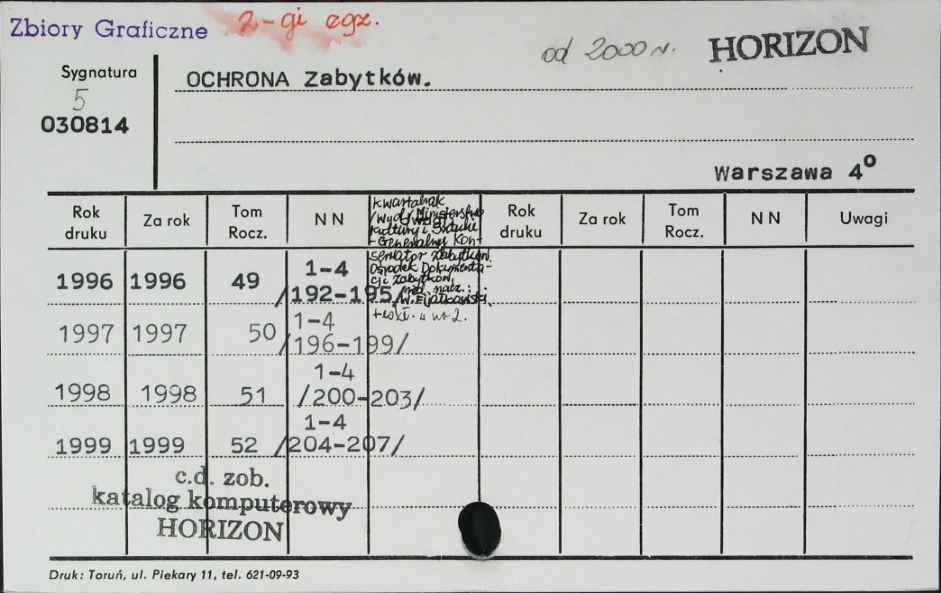 Zbiory Graficzne
2-gi egz.
od 2000 r.
HORIZON
Sygnatura
5
030814
OCHRONA Zabytków.
Warszawa 4º
Rok druku Za rok Tom Rocz. N N Uwagi Rok druku Za rok Tom Rocz. N N Uwagi
Kwartalnik
/Wyd./ Ministerstwo
Kultury i Sztuki
+ Generalny Kon-
serwator Zabytków.
Ośrodek Dokumenta-
cji Zabytków,
red. nacz.:
1996 1996 49 1-4
/192-195/
1997 1997 50 1-4
/196-199/
1998 1998 51 1-4
/200-203/
1999 1999 52 1-4
/204-207/
c.d. zob.
katalog komputerowy
HORIZON
Druk: Toruń, ul. Piekary 11, tel. 621-09-93